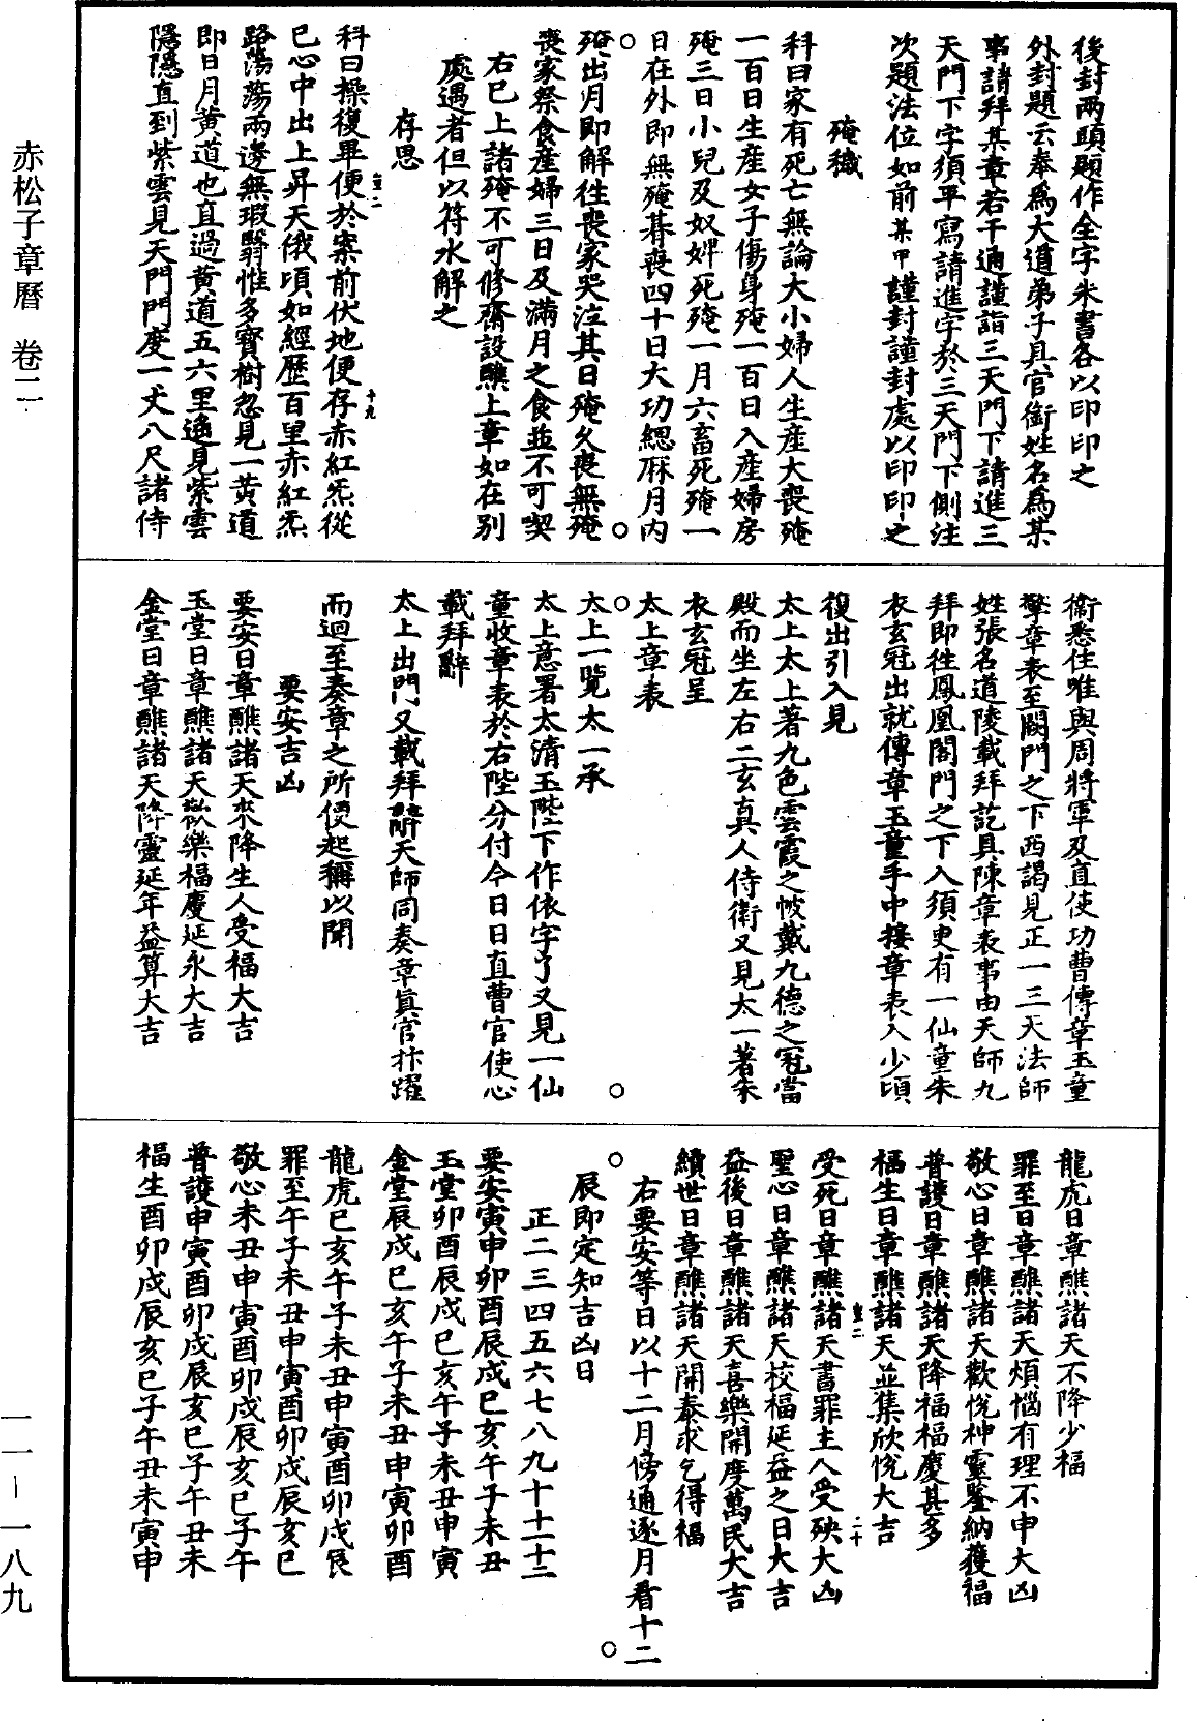 赤松子章曆 卷二
一一－一八九
後封兩頭題作全字朱書各以印印之
外封題云奉爲大道弟子具官銜姓名爲某
事請拜某章若干通謹詣三天門下請進三
天門下字須平寫請進字於三天門下側注
次題法位如前某甲謹封謹封處以印印之
殗穢
科曰家有死亡無論大小婦人生產大喪殗
一百日生產女子傷身殗一百日入產婦房
殗三日小兒及奴婢死殗一月六畜死殗一
日在外即無殗朞喪四十日大功緦麻月內
殗出月即解往喪家哭泣其日殗久喪無殗
喪家祭食產婦三日及滿月之食並不可喫
右已上諸殗不可修齋設醮上章如在別
處遇者但以符水解之
存思
科曰操復畢便於案前伏地便存赤紅炁從
己心中出上昇天俄頃如經歷百里赤紅炁
路蕩蕩兩邊無瑕翳惟多寶樹忽見一黃道
即日月黃道也直過黃道五六里遙見紫雲
隱隱直到紫雲見天門門度一丈八尺諸侍
衞悉住唯與周將軍及直使功曹傳章玉童
擎章表至闕門之下西謁見正一三天法師
姓張名道陵載拜訖具陳章表事由天師九
拜即往鳳凰閣門之下入須臾有一仙童朱
衣玄冠出就傳章玉童手中接章表入少頃
復出引入見
太上太上著九色雲霞之帔戴九德之冠當
殿而坐左右二玄真人侍衛又見太一著朱
衣玄冠呈
太上章表
太上一覽太一承
太上意署太清玉陛下作依字了又見一仙
童收章表於右陛分付今日日直曹官使心
載拜辭
太上出門又載拜辭天師同奏章真官抃躍
而迴至奏章之所便起稱以聞
要安吉凶
要安日章醮諸天來降生人受福大吉
玉堂日章醮諸天歡樂福慶延永大吉
金堂日章醮諸天降靈延年益算大吉
龍虎日章醮諸天不降少福
罪至日章醮諸天煩惱有理不申大凶
敬心日章醮諸天歡悅神靈鑒納獲福
普護日章醮諸天降福福慶甚多
福生日章醮諸天並集欣悅大吉
受死日章醮諸天書罪主人受殃大凶
聖心日章醮諸天校福延益之日大吉
益後日章醮諸天喜樂開度萬民大吉
續世日章醮諸天開泰求乞得福
右要安等日以十二月傍通逐月看十二
辰即定知吉凶日
正二三四五六七八九十十一十二
要安寅申卯酉辰戌巳亥午子未丑
玉堂卯酉辰戌巳亥午子未丑申寅
金堂辰戌巳亥午子未丑申寅卯酉
龍虎巳亥午子未丑申寅酉卯戌辰
罪至午子未丑申寅酉卯戌辰亥巳
敬心未丑申寅酉卯戌辰亥巳子午
普護申寅酉卯戌辰亥巳子午丑未
福生酉卯戌辰亥巳子午丑未寅申